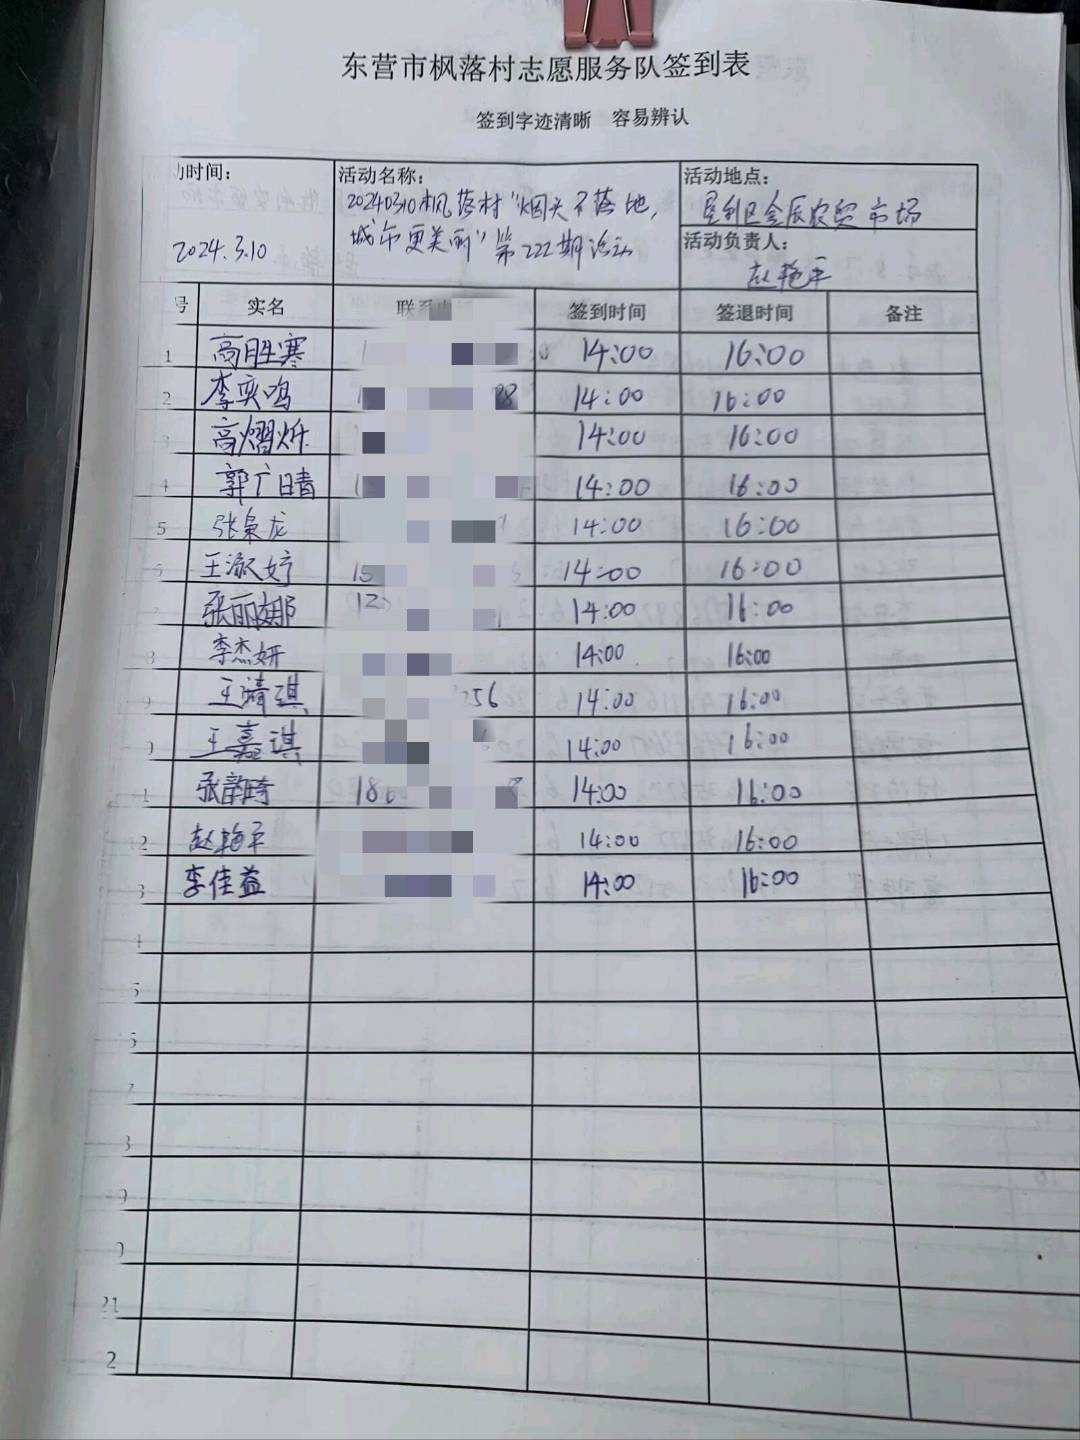 东营市枫落村志愿服务队签到表
签到字迹清晰 容易辨认
动时间： 活动名称： 活动地点：
20240310枫落村“烟头不落地， 垦利区金辰农贸市场
2024.3.10 城市更美丽”第222期活动 活动负责人：
赵艳平
号 实名 联系 签到时间 签退时间 备注
1 高胜寒 14:00 16:00
2 李奕鸣 14:00 16:00
3 高熠烁 14:00 16:00
4 郭广晴 14:00 16:00
5 张枭龙 14:00 16:00
6 王淑婷 15 14:00 16:00
张丽娜 14:00 16:00
8 李杰妍 14:00 16:00
9 王婧琪 256 14:00 16:00
0 王嘉琪 14:00 16:00
1 张韵琦 18 14:00 16:00
12 赵艳平 14:00 16:00
3 李佳益 14:00 16:00
4
5
6
7
8
9
0
21
2